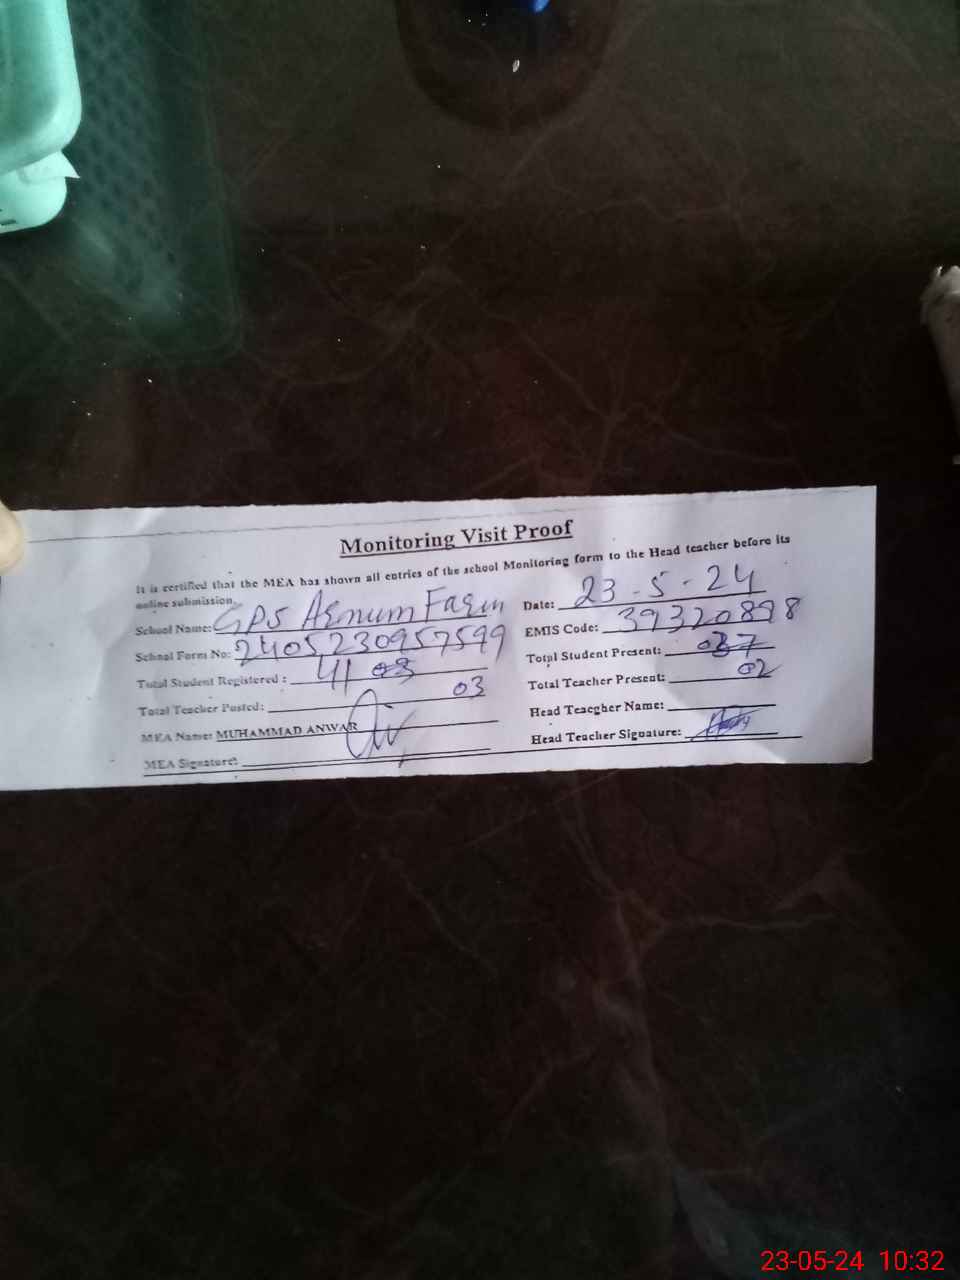 Monitoring Visit Proof
It is certified that the MEA has shown all entries of the school Monitoring form to the Head teacher before its
online submission.
School Name: GPS Farm Date: 23-5-24
School Form No: 2405230957599 EMIS Code: 39320898
Total Student Registered : 41 Total Student Present: 37
Total Teacher Posted: 03 Total Teacher Present: 02
MEA Name: MUHAMMAD ANWAR Head Teacgher Name:
MEA Signature: Head Teacher Signature:
23-05-24 10:32